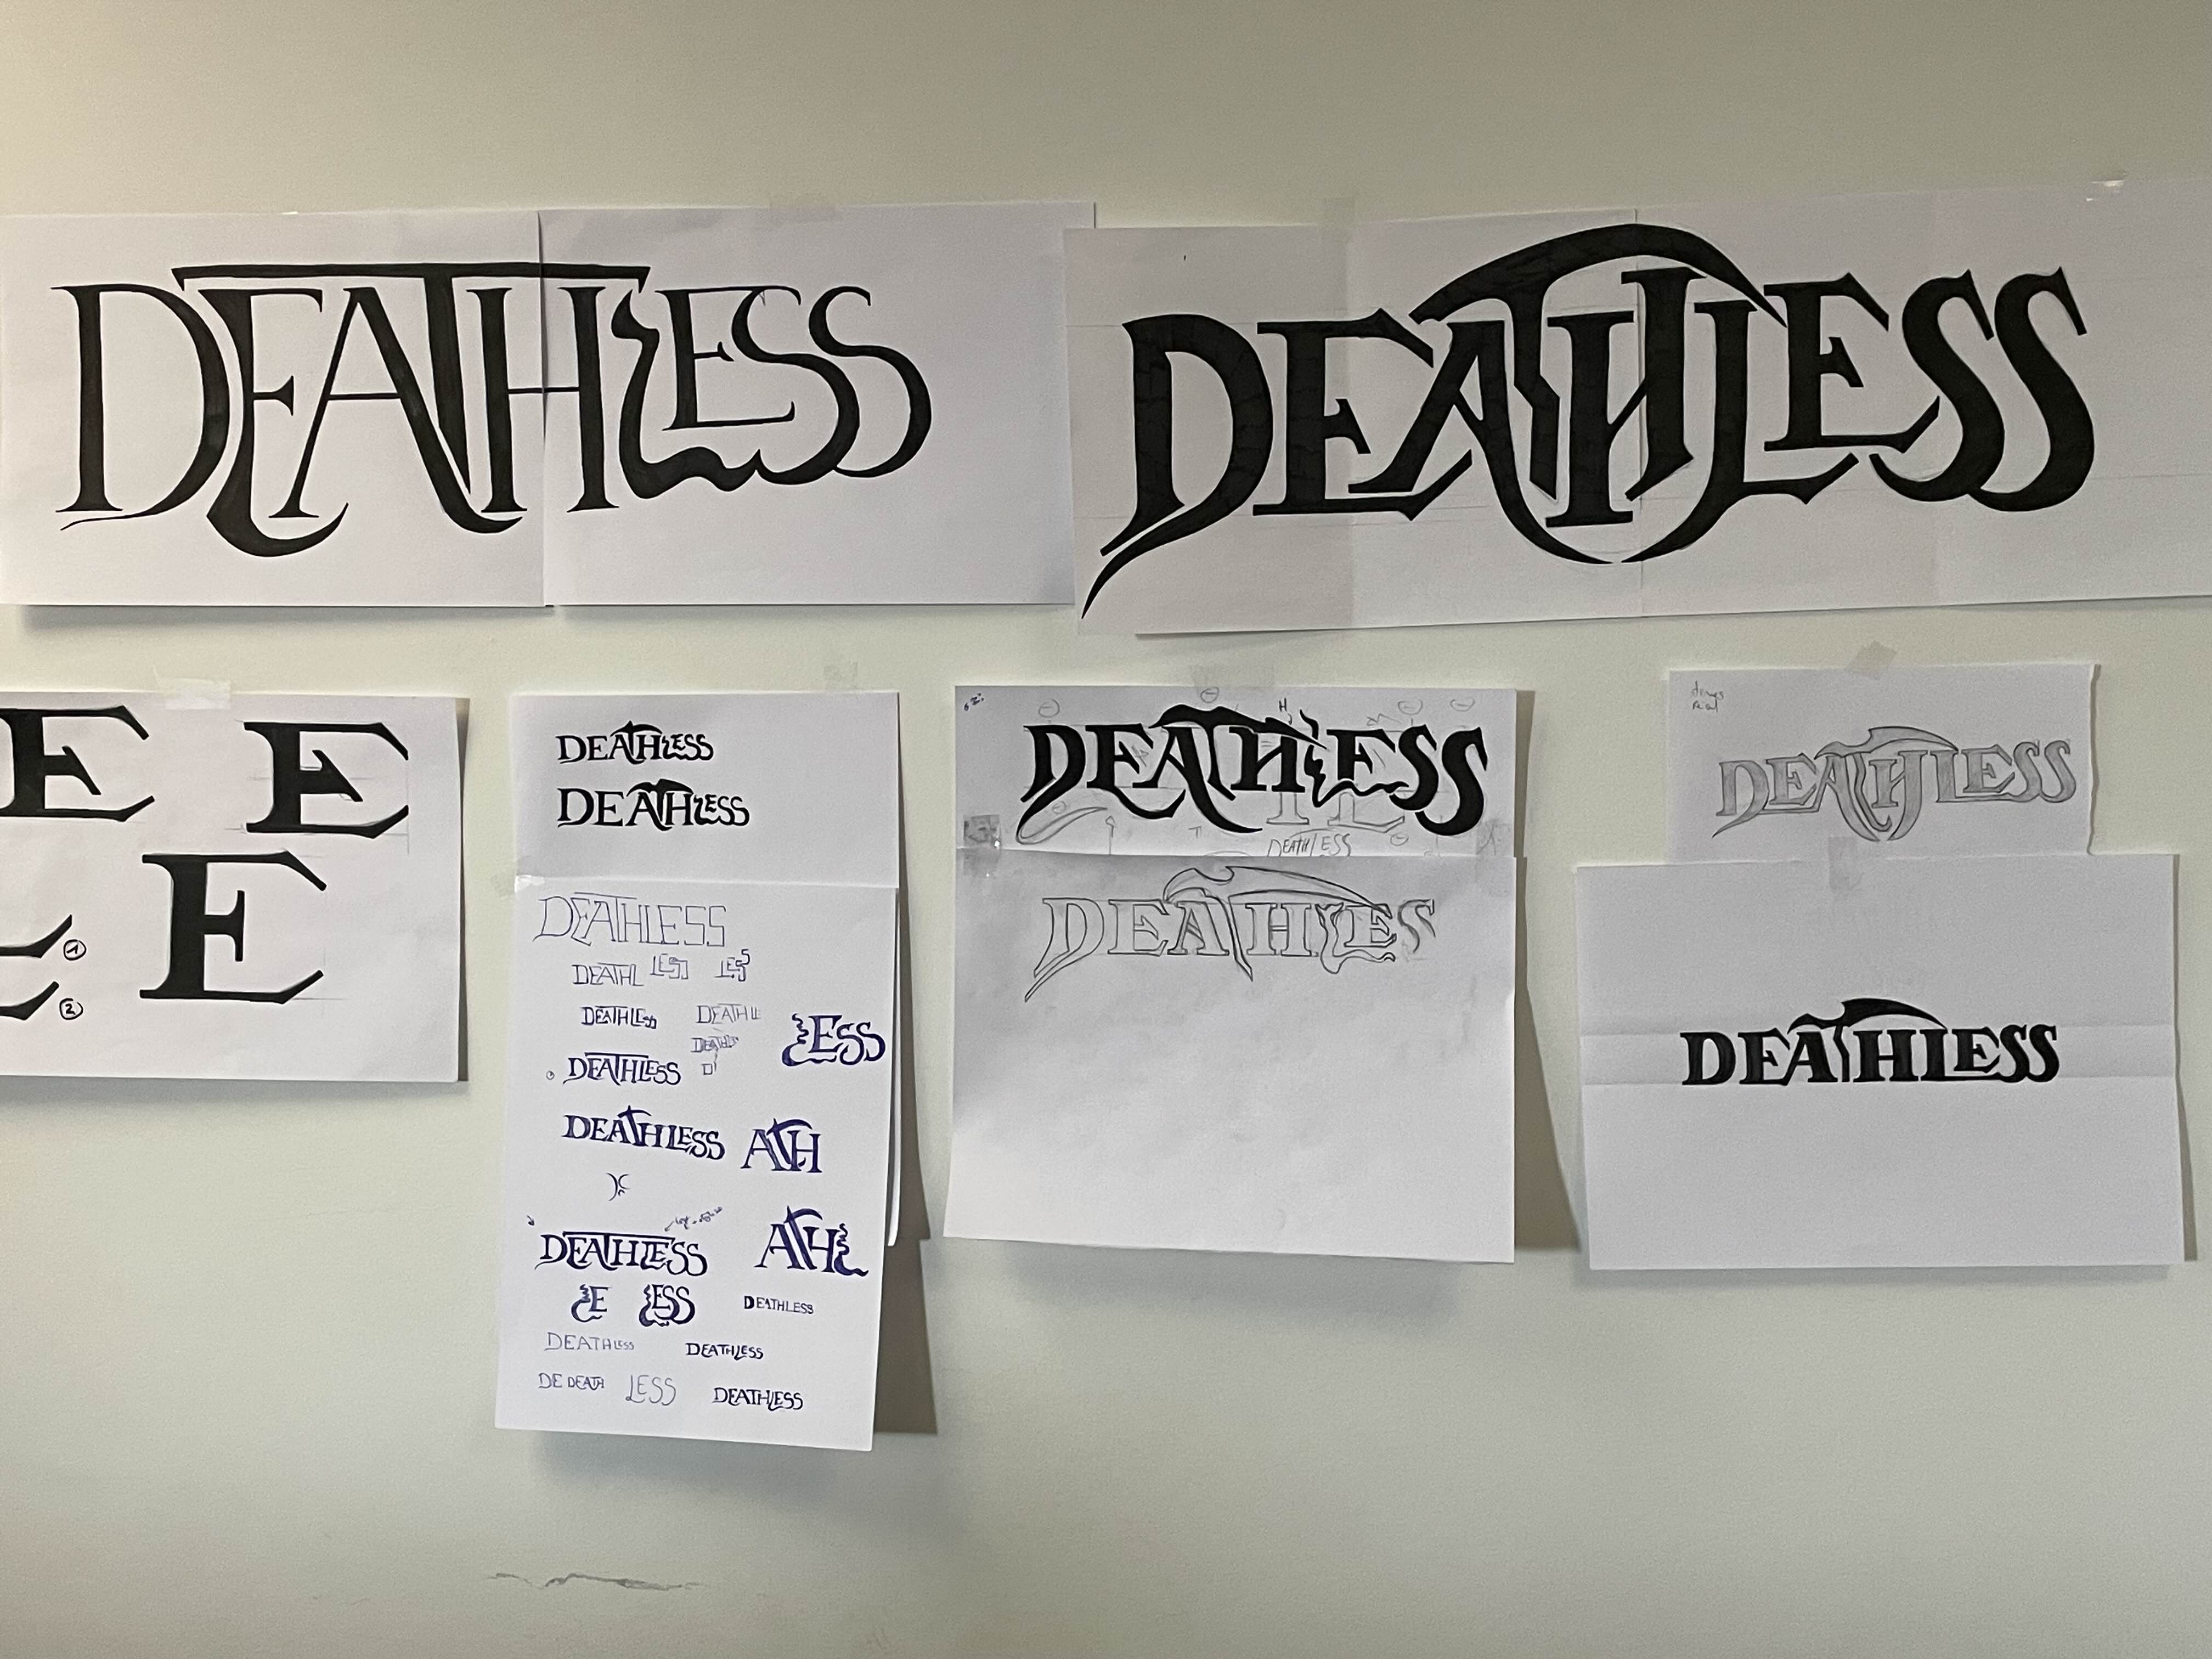 DEATHLESS
DEATHLESS
E E
E
1
2
DEATHLESS
DEATHLESS
DEATHLESS
DEATHL LESS LESS
DEATHLESS DEATHLE
DEATHLESS
LESS
DEATHLESS
DEATHLESS ATH
DEATHLESS ATHL
LE LESS DEATHLESS
DEATHLESS DEATHLESS
DE DEATH LESS DEATHLESS
H
DEATHLESS
T L
DEATHLESS
DEATHLES
DEATHLESS
DEATHLESS